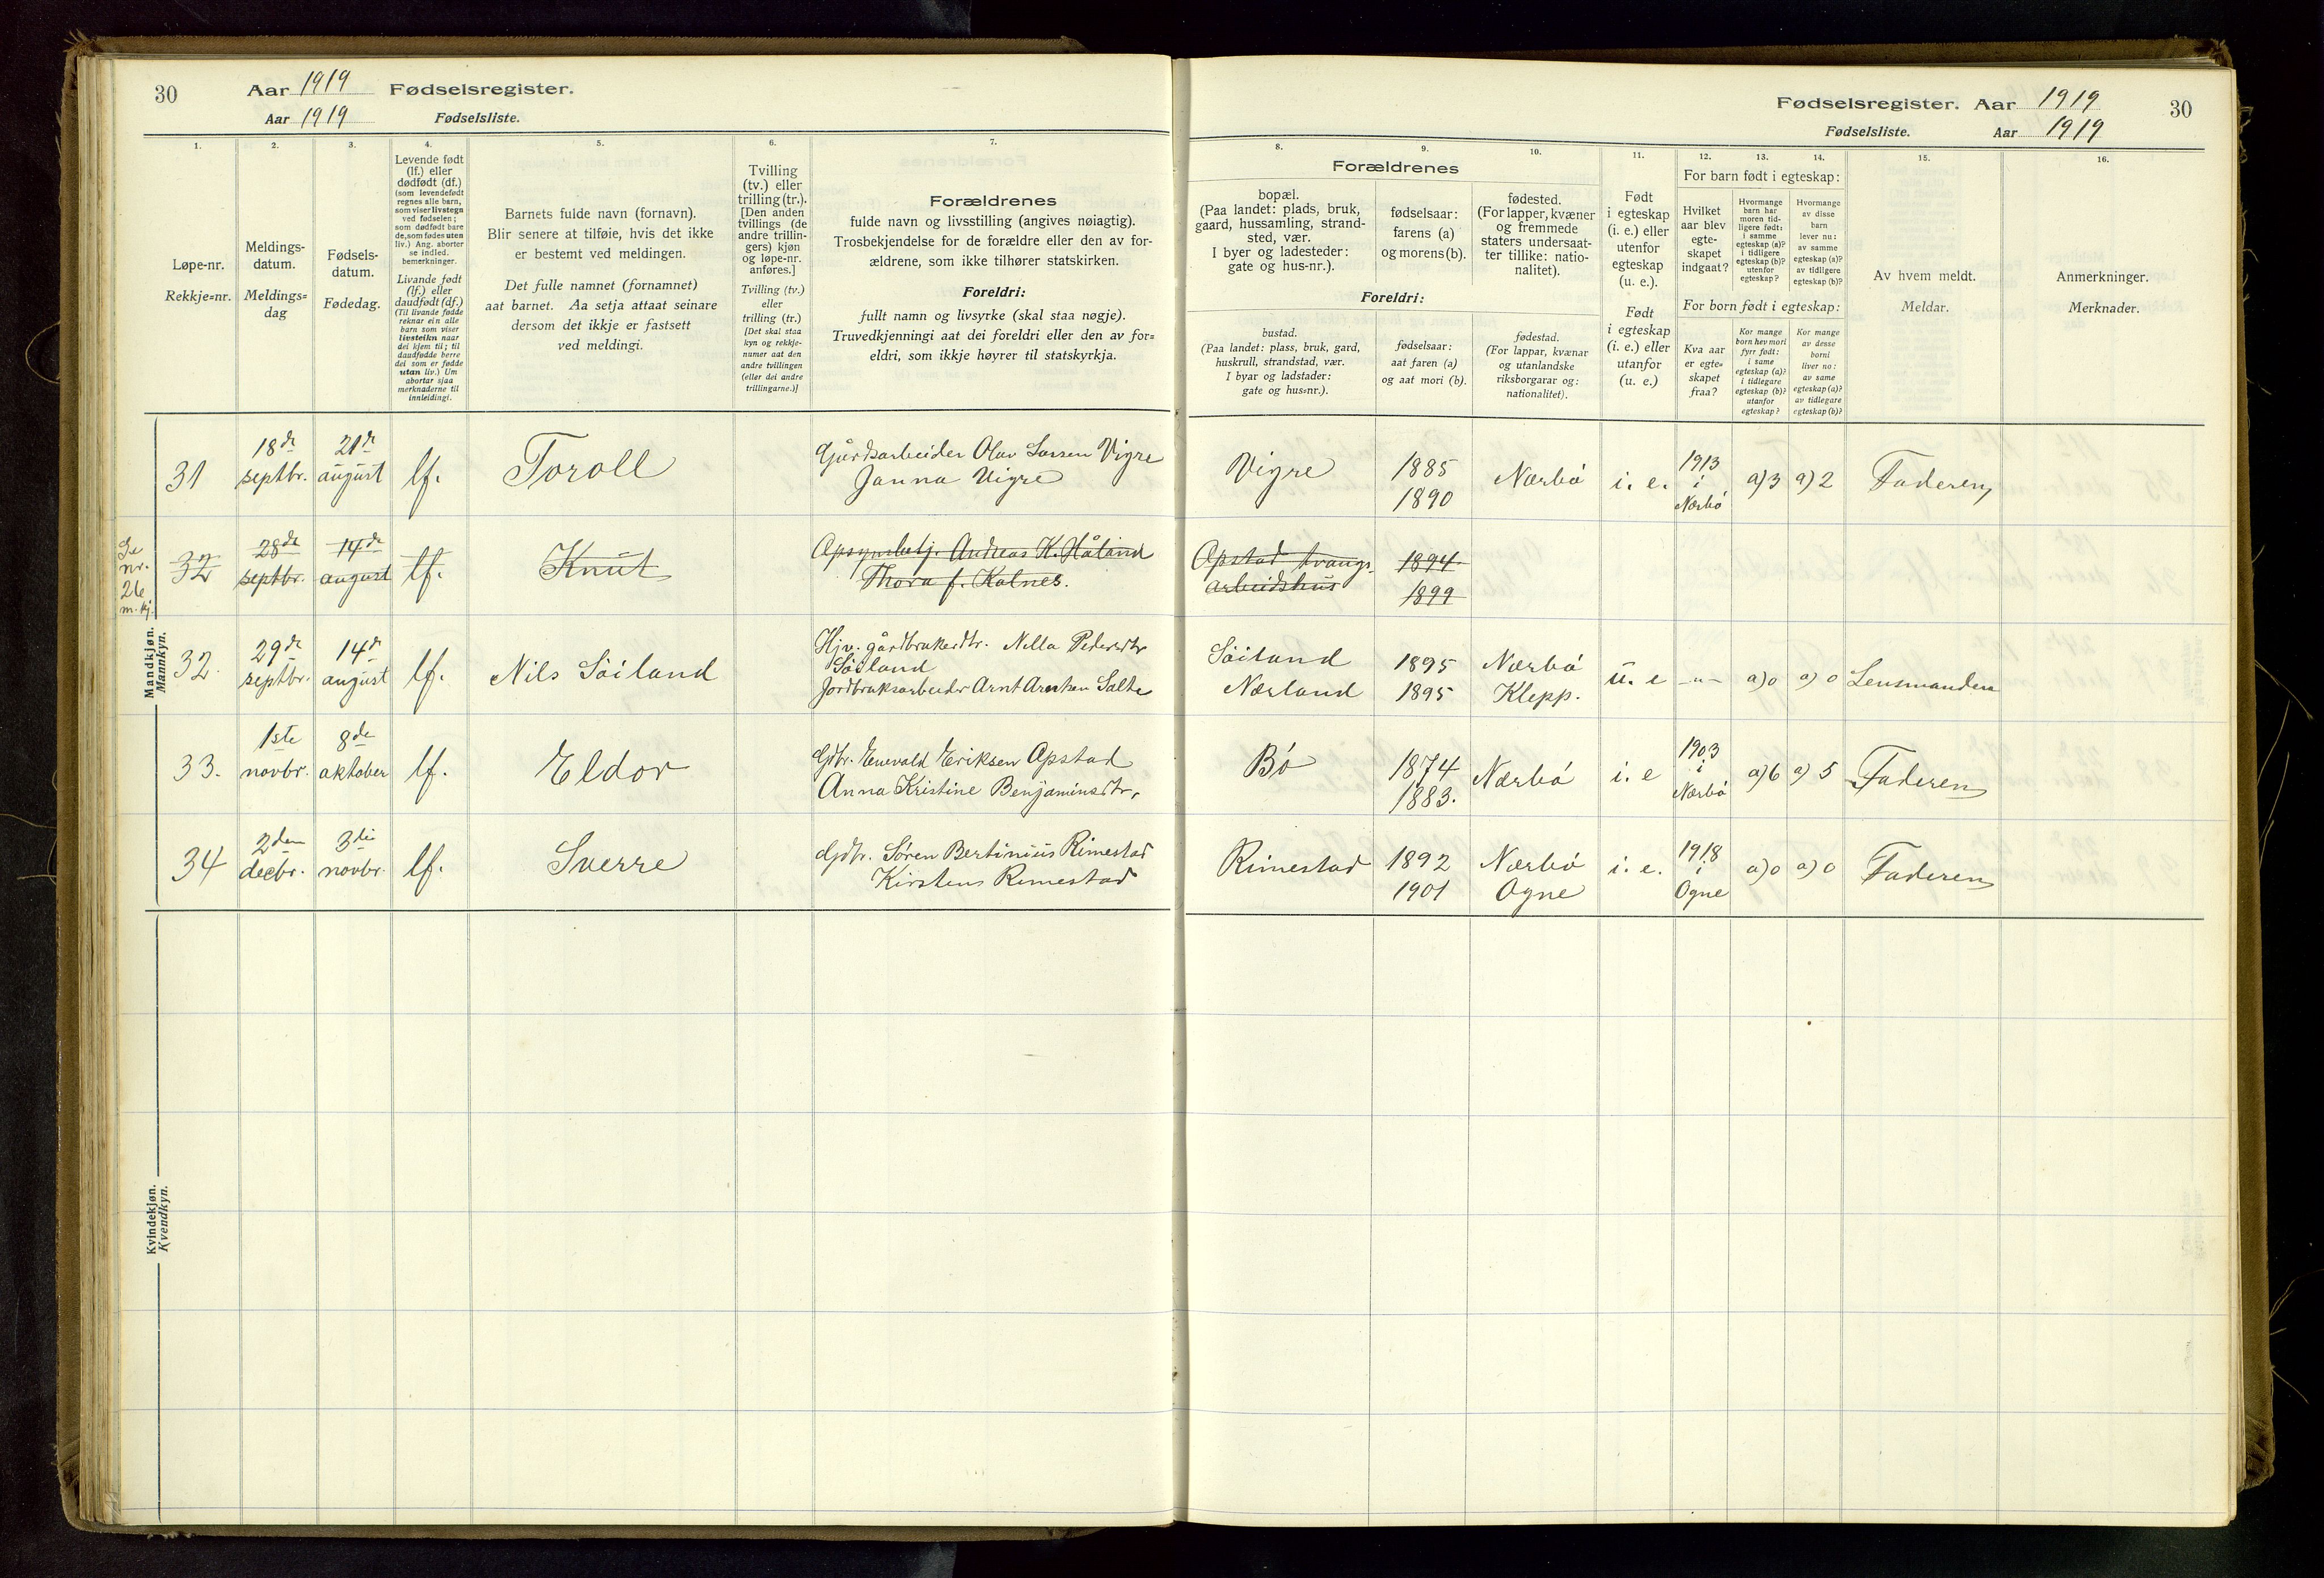 30
Aar 1919 Fødselsregister.
Aar 1919 Fødselsliste.
1. 2. 3. 4. 5. 6. 7.
Løpe-nr.
Rekkje=nr.
Meldings-
datum.
Meldings=
dag
Fødsels-
datum.
Fødedag.
Levende født
(lf.) eller
dødfødt (df.)
(som levendefødt
regnes alle barn,
som viser livstegn
ved fødselen;
som dødfødt bare
de, som fødes uten
liv.) Ang. aborter
se indled.
bemerkninger.
Livande født
(lf.) eller
daudfødt (df.)
(Til livande fødde
reknar ein alle
barn som viser
livsteikn naar
dei kjem til; til
daudfødde berre
dei som er fødde
utan liv.) Um
abortar sjaa
merknaderne til
innleidingi.
Barnets fulde navn (fornavn).
Blir senere at tilføie, hvis det ikke
er bestemt ved meldingen.
Det fulle namnet (fornamnet)
aat barnet. Aa setja attaat seinare
dersom det ikkje er fastsett
ved meldingi.
Tvilling
(tv.) eller
trilling (tr.).
[Den anden
tvillings (de
andre trillin-
gers) kjøn
og løpe-nr.
anføres.]
Tvilling (tv.)
eller
trilling (tr.)
[Det skal staa
kyn og rekkje-
numer aat den
andre tvillingen
(eller dei andre
trillingarne.)]
Forældrenes
fulde navn og livsstilling (angives nøiagtig).
Trosbekjendelse for de forældre eller den av for-
ældrene, som ikke tilhører statskirken.
Foreldri:
fullt namn og livsyrke (skal staa nøgje).
Truvedkjenningi aat dei foreldri eller den av for=
eldri, som ikkje høyrer til statskyrkja.
Mandkjøn.
Mannkyn.
31 18de septbr. 21de august lf. Toroll
Gårdsarbeider Olav Larsen Vigre
Janna Vigre
Se
nr.
26
m.kj.
32 28de septbr. 14de august lf. Knut
Opsynsbetj. Andreas K. Håland
Thora f. Kalnes.
32. 29de septbr. 14de august lf. Nils Söiland
Hjv. gårdbrukerdtr. Nella Pedersdtr
Söiland
Jordbruksarbeider Arnt Arntsen Salte
33. 1ste novbr. 8de oktober lf. Eldor
Gdbr. Enevald Eriksen Opstad
Anna Kristine Benjaminsdtr.
34 2den decbr. 3die novbr. lf. Sverre
Gdbr. Sören Bertinius Rimestad
Kirstens Rimestad
Kvindekjøn.
Kvendkyn.
Fødselsregister. Aar 1919 30
Fødselsliste. Aar 1919
8. 9. 10. 11. 12. 13. 14. 15. 16.
Forældrenes
bopæl.
(Paa landet: plads, bruk,
gaard, hussamling, strand-
sted, vær.
I byer og ladesteder:
gate og hus-nr.).
fødselsaar:
farens (a)
og morens (b).
fødested.
(For lapper, kvæner
og fremmede
staters undersaat-
ter tillike: natio-
nalitet).
Foreldri:
bustad.
(Paa landet: plass, bruk, gard,
huskrull, strandstad, vær.
I byar og ladstader:
gate og hus=nr.).
fødselsaar:
aat faren (a)
og aat mori (b).
fødestad.
(For lappar, kvænar
og utanlandske
riksborgarar og:
nationalitet).
Født
i egteskap
(i. e.) eller
utenfor
egteskap
(u. e.).
Født
i egteskap
(i. e.) eller
utanfor
(u. e.)
For barn født i egteskap:
Hvilket
aar blev
egte-
skapet
indgaat?
Hvormange
barn har
moren tid-
ligere født:
i samme
egteskap (a)?
i tidligere
egteskap (b)?
utenfor
egteskap?
Hvormange
av disse
barn
lever nu:
av samme
egteskap (a)?
av tidligere
egteskap (b)?
For born født i egteskap:
Kva aar
er egte=
skapet
fraa?
Kor mange
born hev mori
fyrr født:
i same
egteskap (a)?
i tidlegare
egteskap (b)?
utanfor
egteskap?
Kor mange
av desse
borni
liver no:
av same
egteskap (a)?
av tidlegare
egteskap (b)?
Av hvem meldt.
Meldar.
Anmerkninger.
Merknader.
Vigre 1885 Nærbö i. e. 1913 i Nærbö a)3 a)2 Faderen
1890
Opstad tvangs- 1894
arbeidshus 1899
Söiland 1895 Nærbö u. e -"- a)0 a)0 Lensmanden
Nærland 1895 Klepp.
Bö 1874 Nærbö i. e 1903 i Nærbö a)6 a) 5 Faderen
1883.
Rimestad 1892 Nærbö i. e. 1918 i Ogne a)0 a)0 Faderen
1901 Ogne